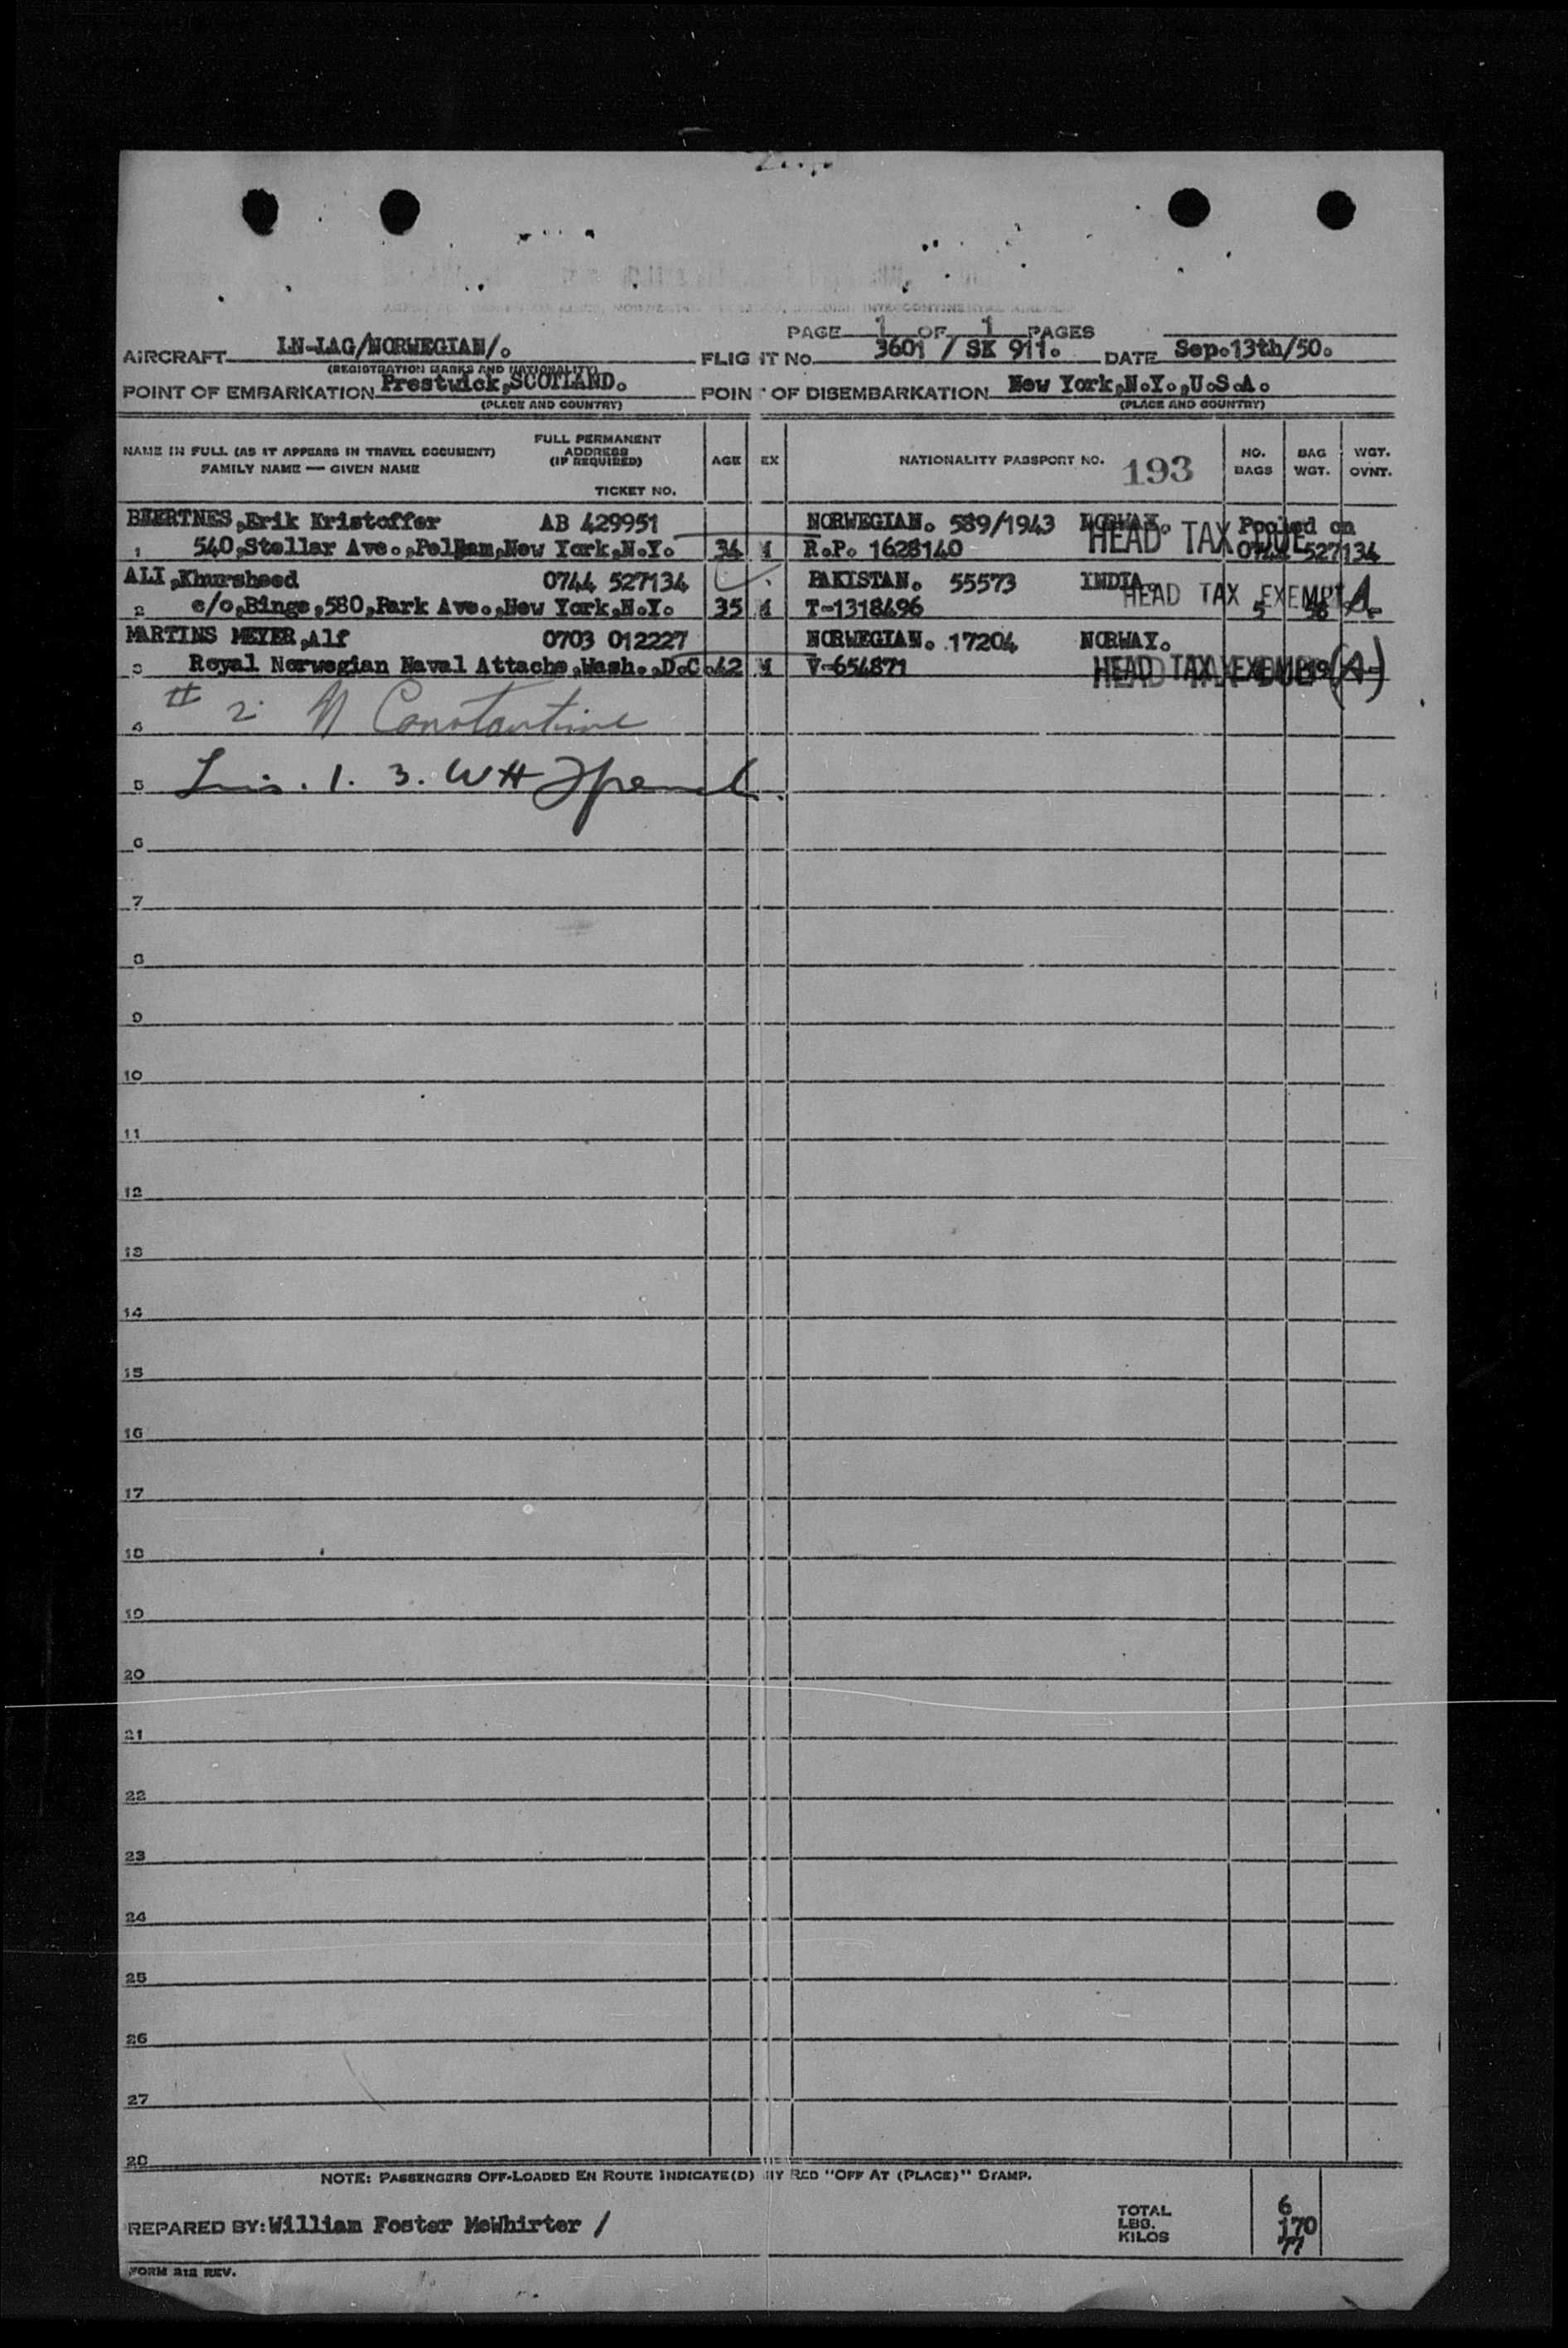 PAGE 1 OF 1 PAGES
AIRCRAFT LN-LAG/NORWEGIAN/. FLIGHT NO. 3601 / SK 911. DATE Sep.13th/50.
(REGISTRATION MARKS AND NATIONALITY)
POINT OF EMBARKATION Prestwick,SCOTLAND. POINT OF DISEMBARKATION New York,N.Y.,U.S.A.
(PLACE AND COUNTRY) (PLACE AND COUNTRY)
NAME IN FULL (AS IT APPEARS IN TRAVEL DOCUMENT) FAMILY NAME — GIVEN NAME
FULL PERMANENT ADDRESS (IF REQUIRED)
TICKET NO.
AGE EX NATIONALITY PASSPORT NO. 193 NO. BAGS BAG WGT. WGT. OVNT.
Erik Kristoffer AB 429951 NORWEGIAN. 589/1943 NORWAY. Pooled on
1 540,Stellar Ave.,Pelham,New York,N.Y. 34 M R.P. 1628140 HEAD TAX DUE 0744 527134
ALI,Khursheed 0744 527134 PAKISTAN. 55573 INDIA. HEAD TAX EXEMPT A
2 c/o,Binge,580,Park Ave.,New York,N.Y. 35 M T-1318496 5 58 -
MARTINS MEYER,Alf 0703 012227 NORWEGIAN. 17204 NORWAY.
3 Royal Norwegian Naval Attache,Wash.,D.C. 42 M V-654871 HEAD TAX EXEMPT 19 (A)
# 2 Constantine
4
1. 3. WH
5
6
7
8
9
10
11
12
13
14
15
16
17
18
19
20
21
22
23
24
25
26
27
28
NOTE: PASSENGERS OFF-LOADED EN ROUTE INDICATE(D) BY RED "OFF AT (PLACE)" STAMP.
PREPARED BY: William Foster McWhirter /
TOTAL 6
LBS. 170
KILOS 77
FORM 212 REV.